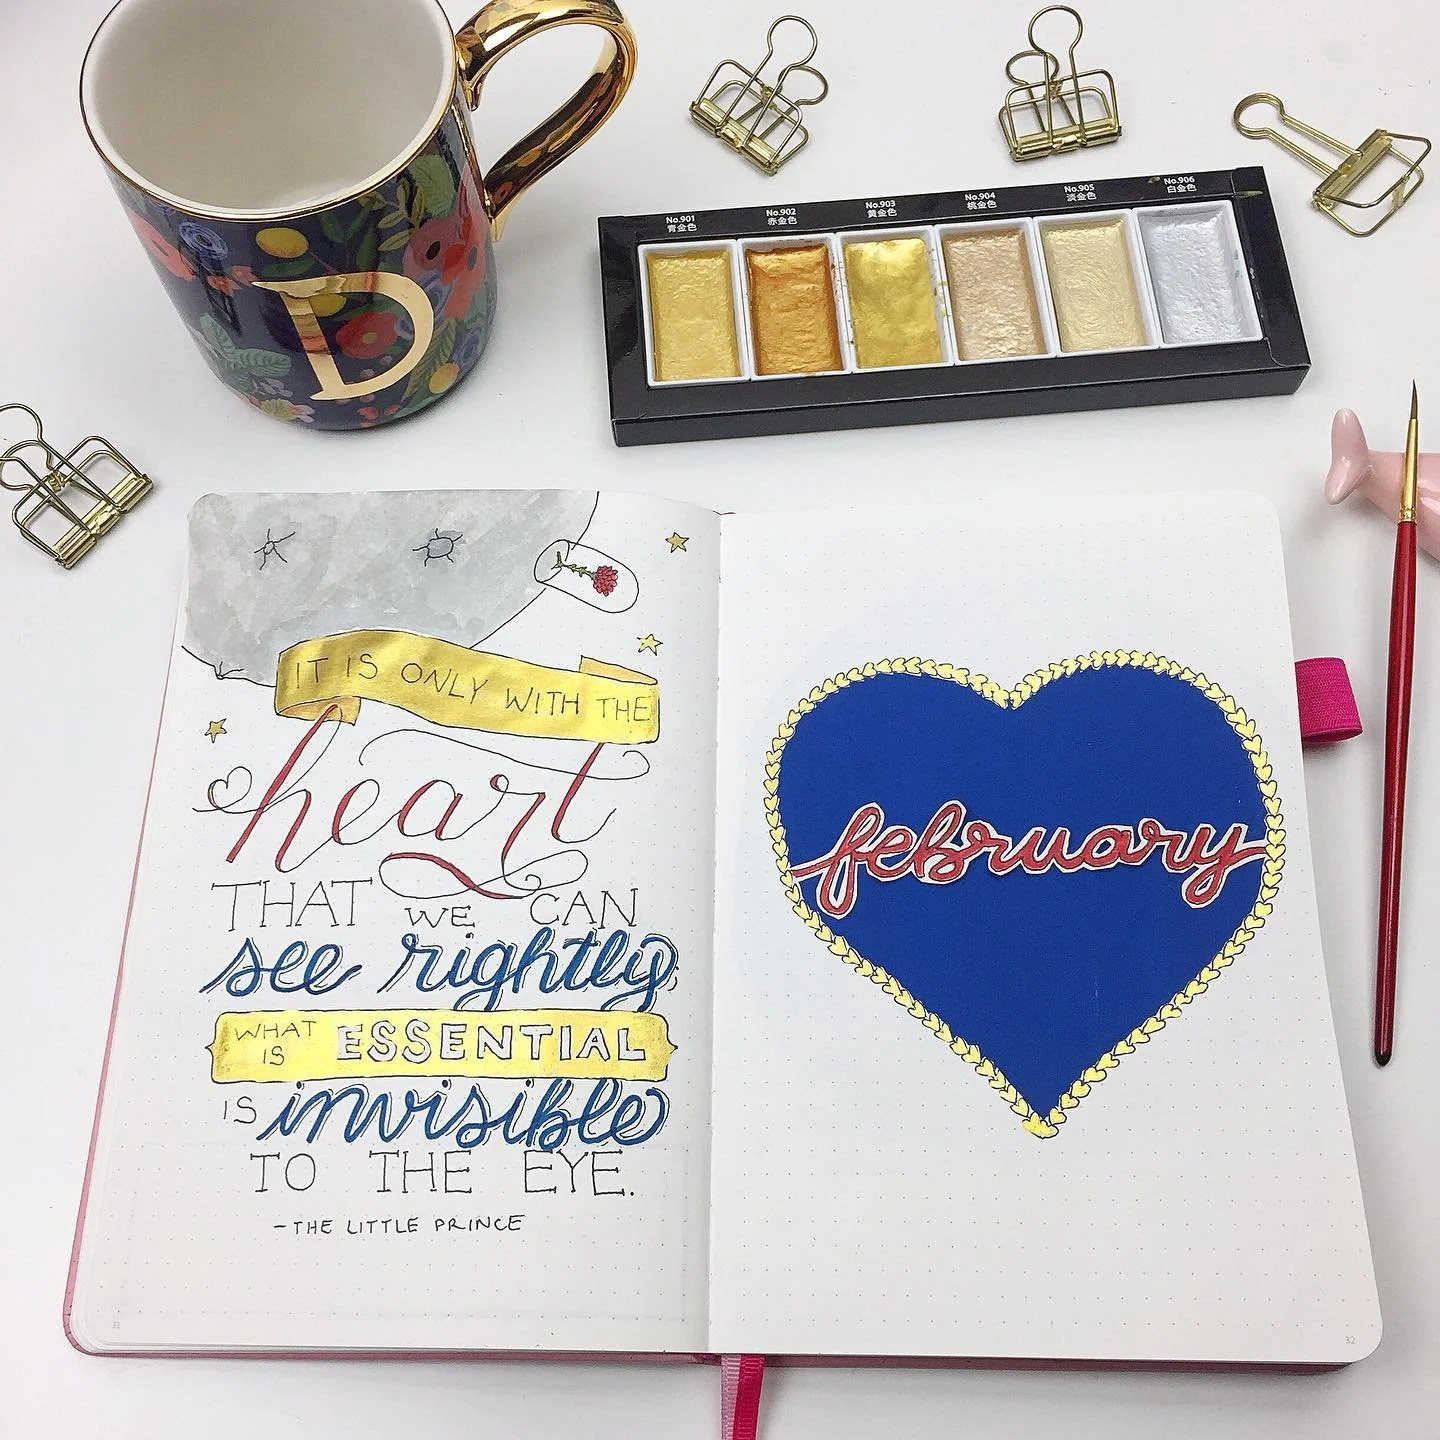 D
No.901 No.902 No.903 No.904 No.905 No.906
青金色 赤金色 黄金色 桃金色 淡金色 白金色
IT IS ONLY WITH THE
heart
THAT WE CAN
see rightly
WHAT IS ESSENTIAL
IS invisible
TO THE EYE.
-THE LITTLE PRINCE
31
february
32